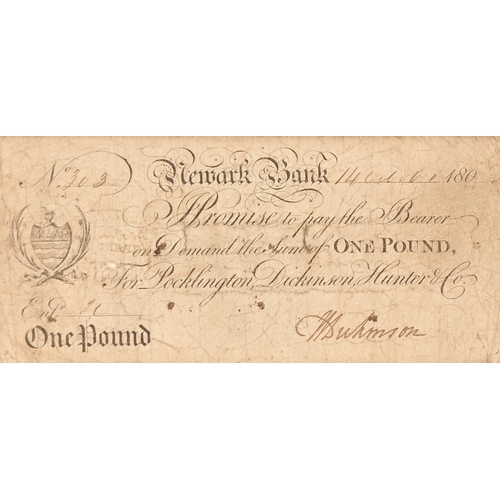 No. 303 Newark Bank 14 180
I Promise to pay the Bearer
on Demand the Sum of ONE POUND,
For Pocklington, Dickinson, Hunter & Co.
Entd.
One Pound
Dickinson